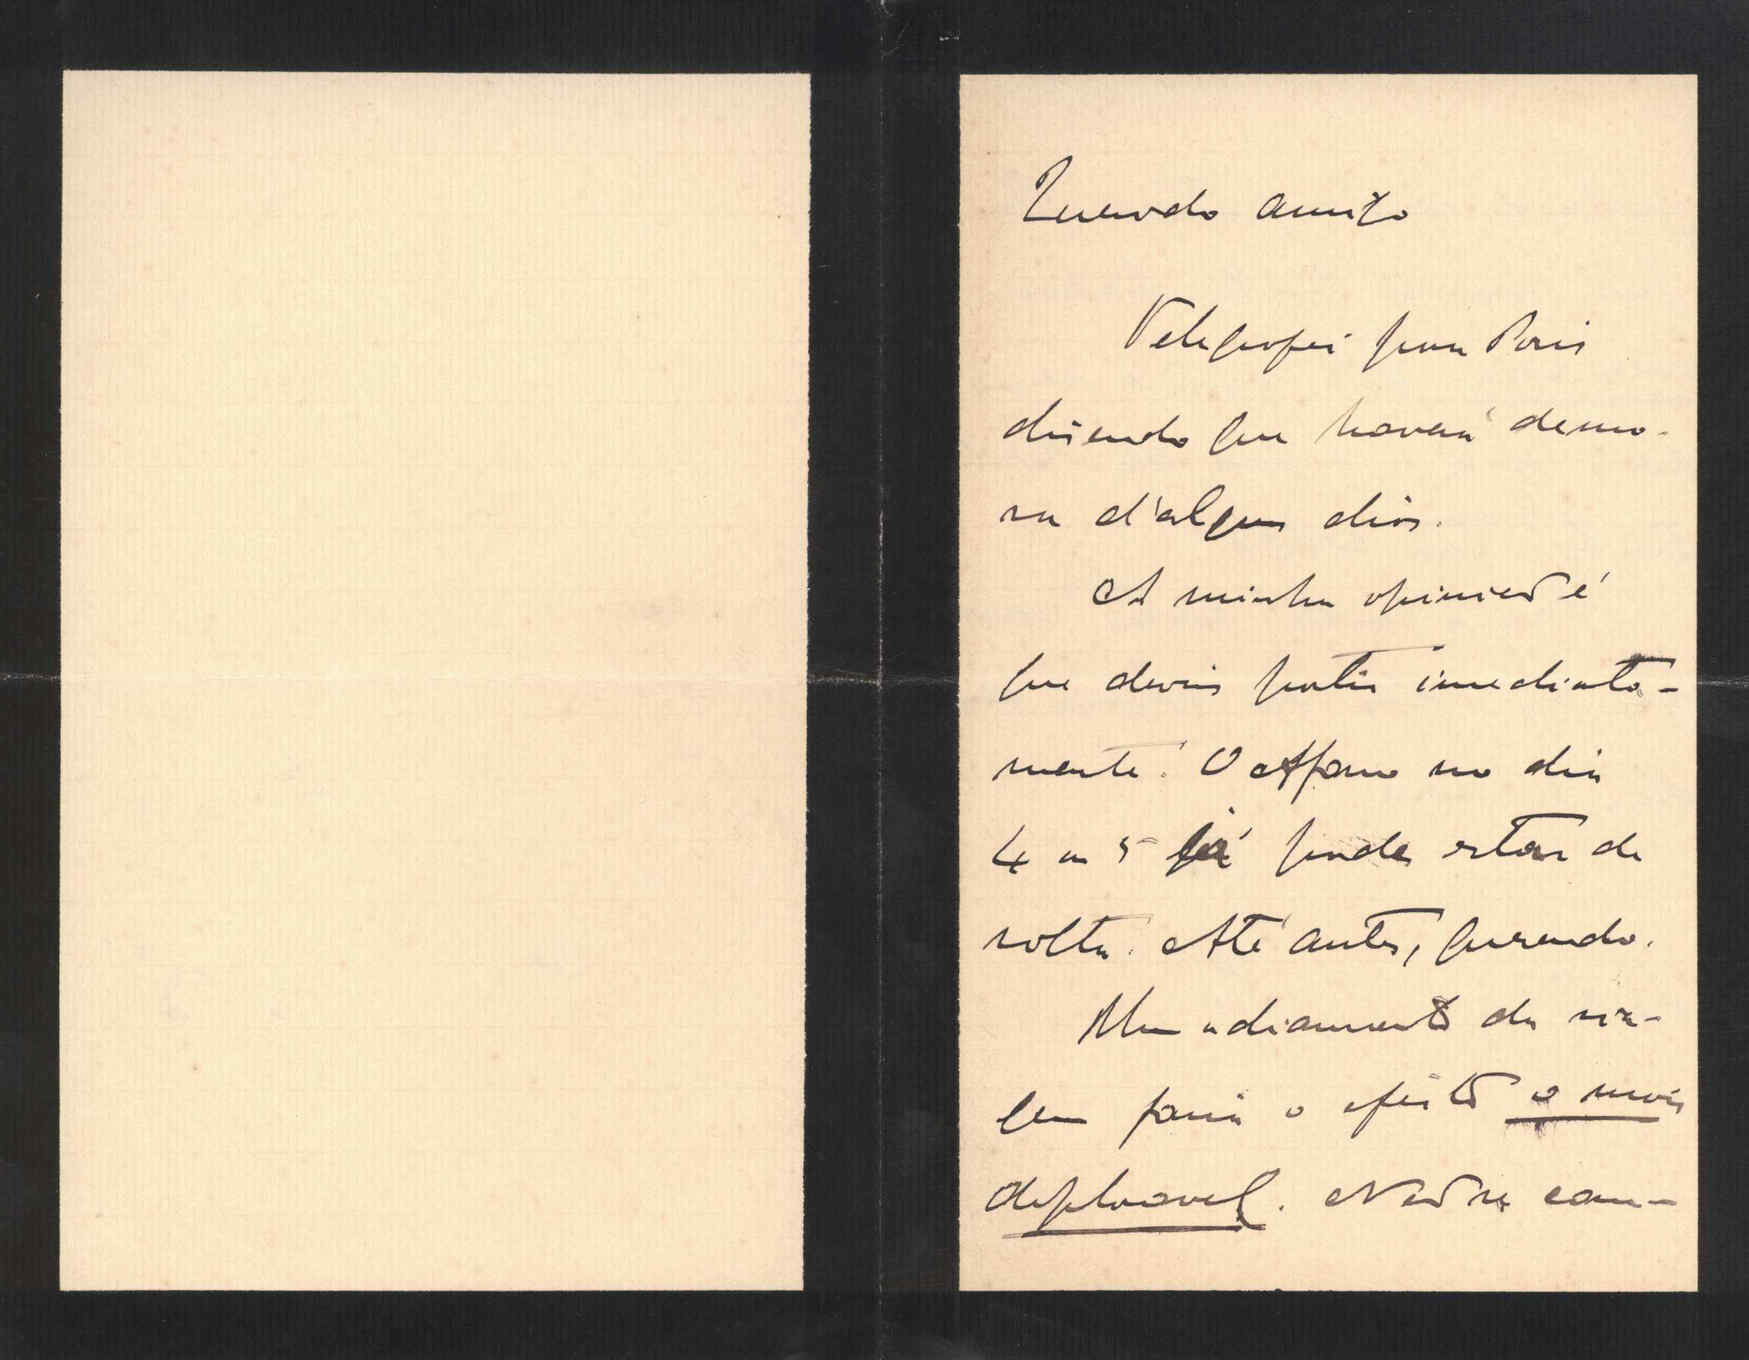 Querido amigo
Telegrafei para Paris
dizendo que haverá demo-
ra d'alguns dias.
A minha opinião é
que deveis partir imediata-
mente. O Affonso no dia
4 ou 5 já pode estar de
volta. Até antes, querendo.
Um adiamento da via-
gem faria o efeito o mais
deploravel. Não se can-